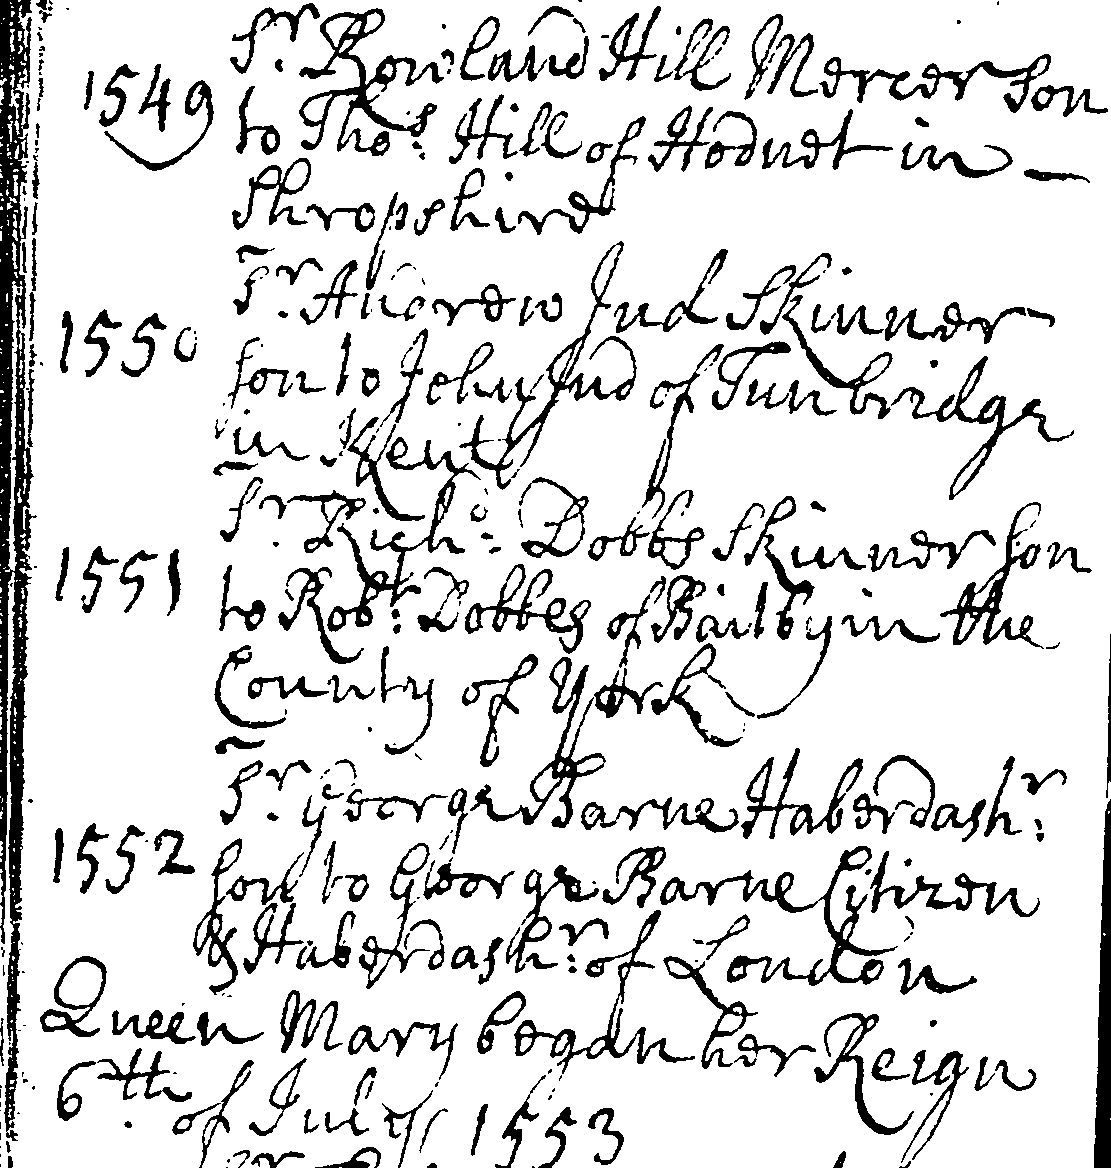 Sr. Rowland Hill Mercer son
1549 to Thos: Hill of Hodnet in
Shropshire
Sr. Andrew Jud Skinner
1550 son to John Jud of Tunbridge
in Kent
Sr. Richd: Dobbs Skinner son
1551 to Robt: Dobbes of Baitby in the
County of York
Sr. George Barne Haberdashr:
1552 son to George Barne Citizen
& Haberdashr: of London
Queen Mary began her Reign
6th. of July 1553